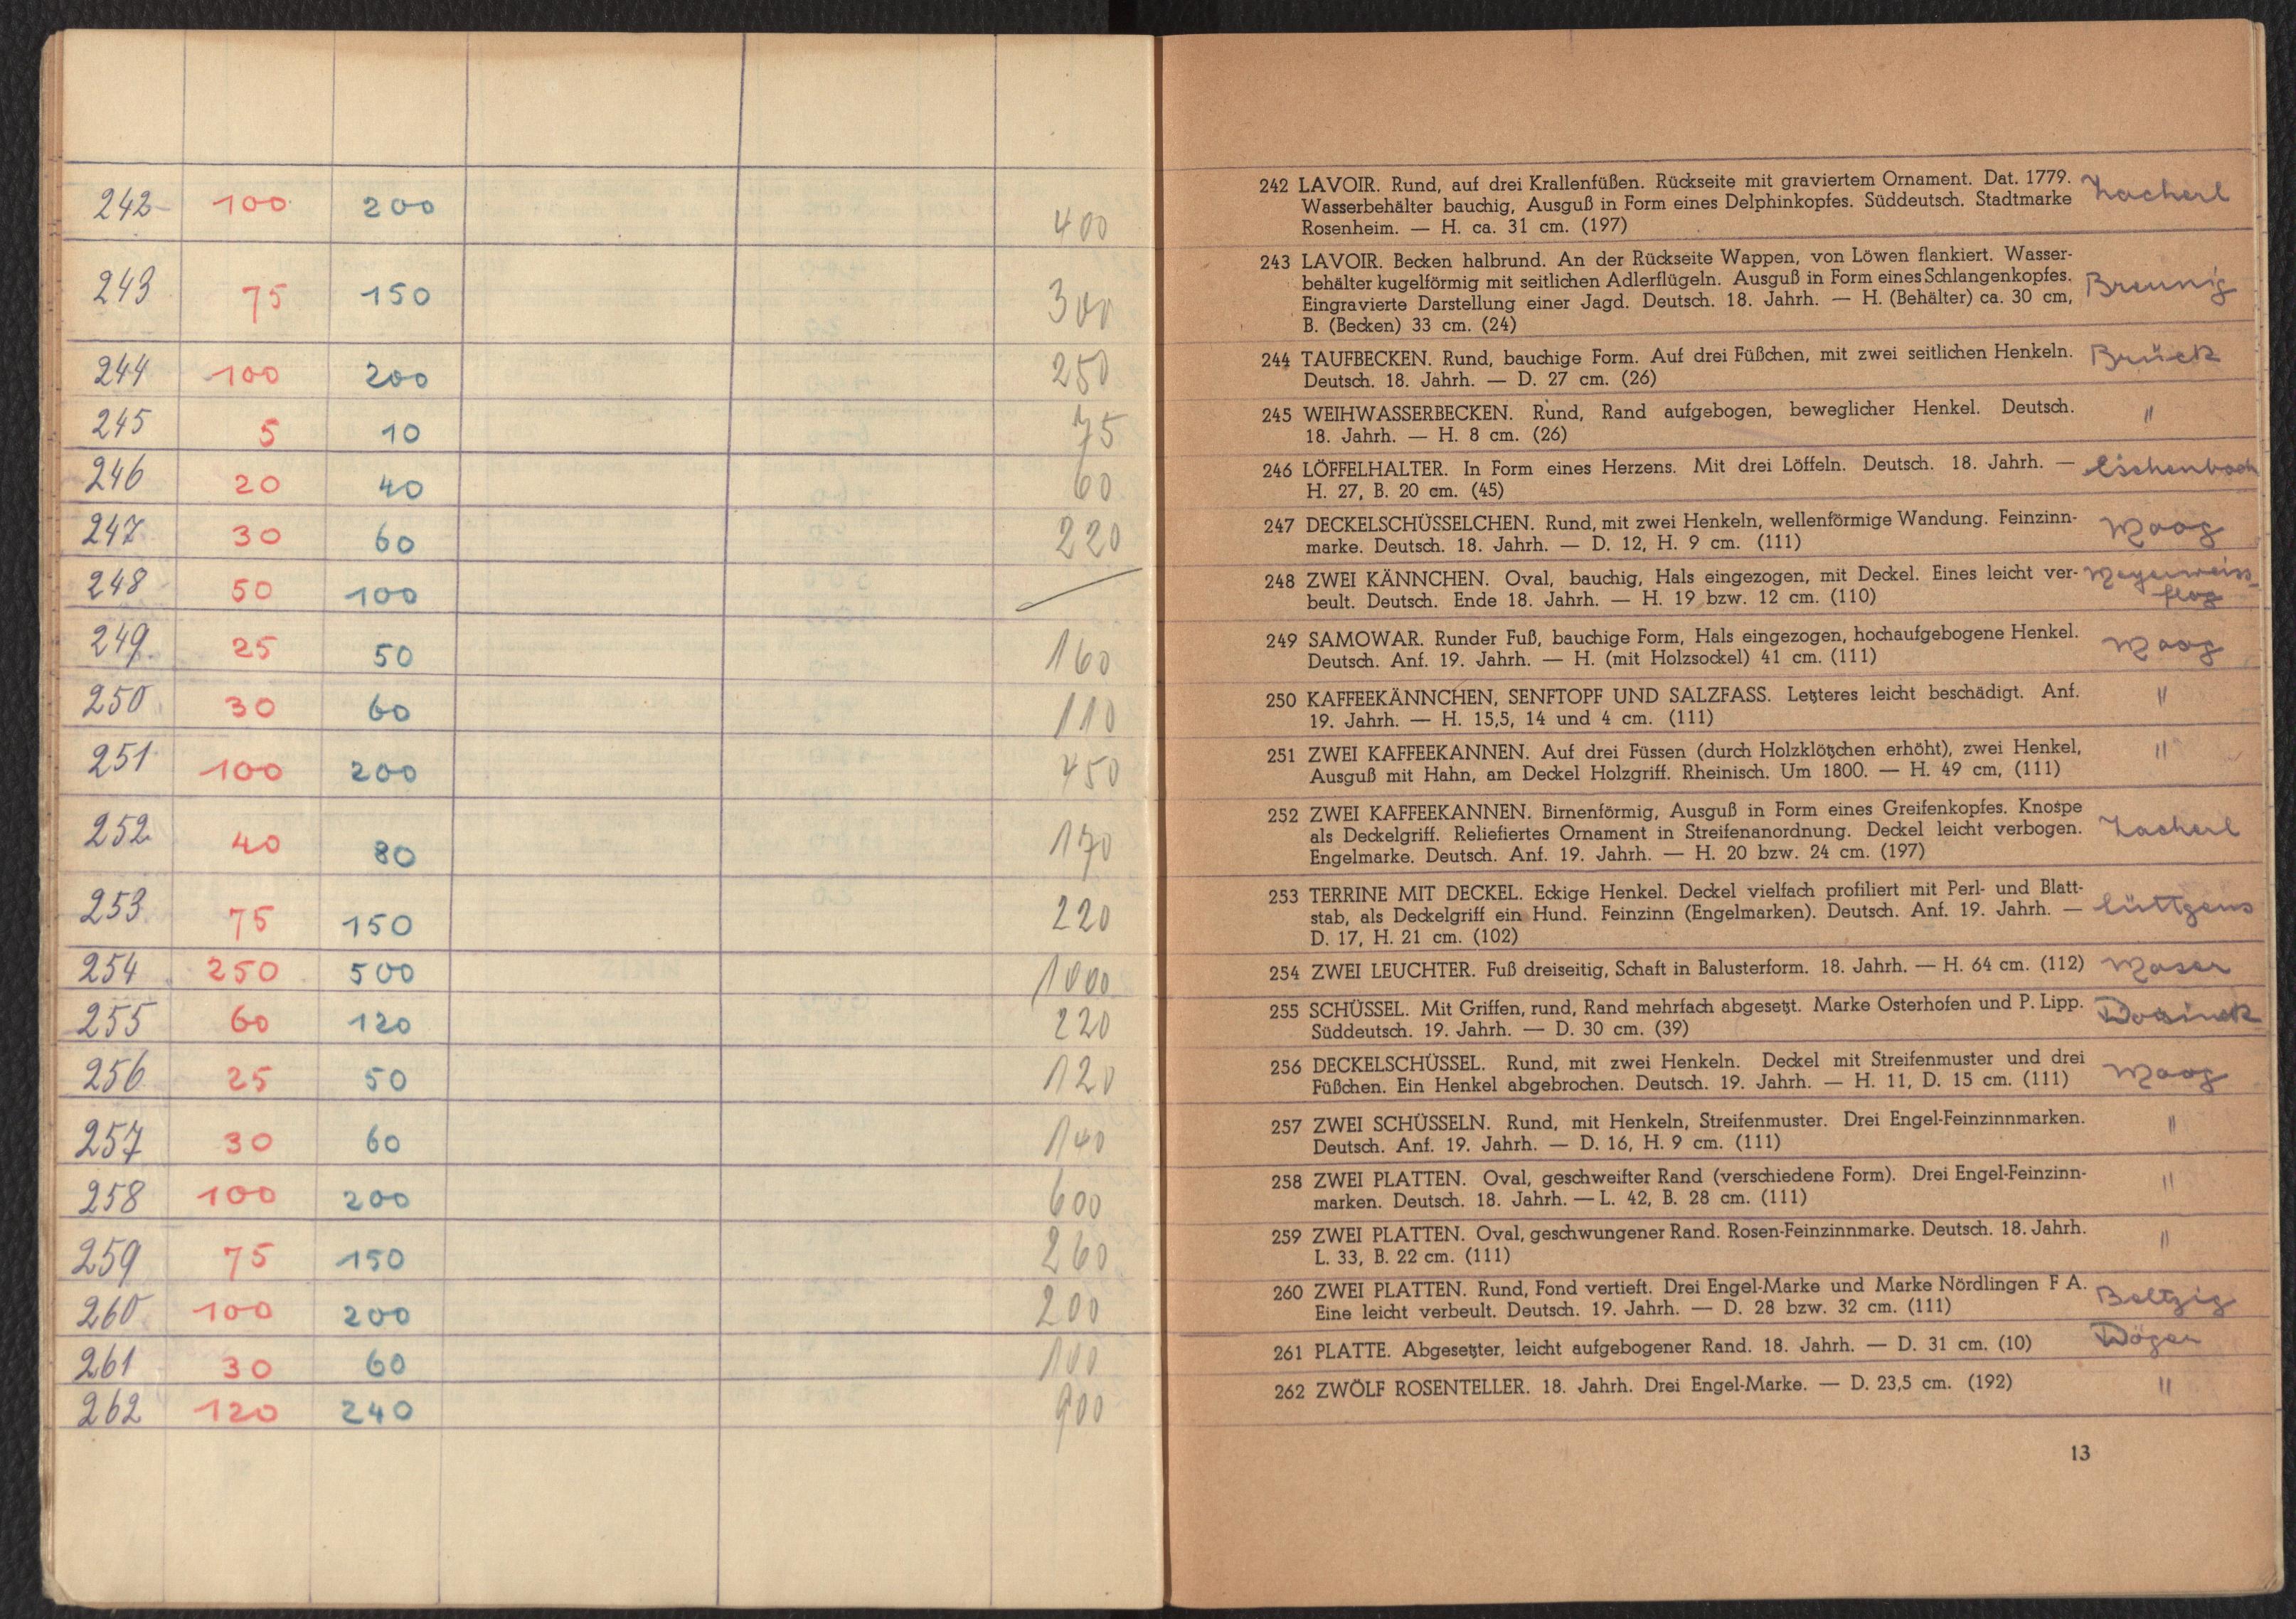 242 100 200 400
243 75 150 300
244 100 200 250
245 5 10 75
246 20 40 60
247 30 60 220
248 50 100 —
249 25 50 160
250 30 60 110
251 100 200 450
252 40 80 170
253 75 150 220
254 250 500 1000
255 60 120 220
256 25 50 120
257 30 60 140
258 100 200 600
259 75 150 260
260 100 200 200
261 30 60 100
262 120 240 900
242 LAVOIR. Rund, auf drei Krallenfüßen. Rückseite mit graviertem Ornament. Dat. 1779. Zacherl
Wasserbehälter bauchig, Ausguß in Form eines Delphinkopfes. Süddeutsch. Stadtmarke
Rosenheim. — H. ca. 31 cm. (197)
243 LAVOIR. Becken halbrund. An der Rückseite Wappen, von Löwen flankiert. Wasser-
behälter kugelförmig mit seitlichen Adlerflügeln. Ausguß in Form eines Schlangenkopfes. Breunig
Eingravierte Darstellung einer Jagd. Deutsch. 18. Jahrh. — H. (Behälter) ca. 30 cm,
B. (Becken) 33 cm. (24)
244 TAUFBECKEN. Rund, bauchige Form. Auf drei Füßchen, mit zwei seitlichen Henkeln. Brück
Deutsch. 18. Jahrh. — D. 27 cm. (26)
245 WEIHWASSERBECKEN. Rund, Rand aufgebogen, beweglicher Henkel. Deutsch. "
18. Jahrh. — H. 8 cm. (26)
246 LÖFFELHALTER. In Form eines Herzens. Mit drei Löffeln. Deutsch. 18. Jahrh. — Eschenbach
H. 27, B. 20 cm. (45)
247 DECKELSCHÜSSELCHEN. Rund, mit zwei Henkeln, wellenförmige Wandung. Feinzinn- Moog
marke. Deutsch. 18. Jahrh. — D. 12, H. 9 cm. (111)
248 ZWEI KÄNNCHEN. Oval, bauchig, Hals eingezogen, mit Deckel. Eines leicht ver- Meyerweiss-
beult. Deutsch. Ende 18. Jahrh. — H. 19 bzw. 12 cm. (110) flog
249 SAMOWAR. Runder Fuß, bauchige Form, Hals eingezogen, hochaufgebogene Henkel. Moog
Deutsch. Anf. 19. Jahrh. — H. (mit Holzsockel) 41 cm. (111)
250 KAFFEEKÄNNCHEN, SENFTOPF UND SALZFASS. Letzteres leicht beschädigt. Anf. "
19. Jahrh. — H. 15,5, 14 und 4 cm. (111)
251 ZWEI KAFFEEKANNEN. Auf drei Füssen (durch Holzklötzchen erhöht), zwei Henkel, "
Ausguß mit Hahn, am Deckel Holzgriff. Rheinisch. Um 1800. — H. 49 cm, (111)
252 ZWEI KAFFEEKANNEN. Birnenförmig, Ausguß in Form eines Greifenkopfes. Knospe
als Deckelgriff. Reliefiertes Ornament in Streifenanordnung. Deckel leicht verbogen. Zacherl
Engelmarke. Deutsch. Anf. 19. Jahrh. — H. 20 bzw. 24 cm. (197)
253 TERRINE MIT DECKEL. Eckige Henkel. Deckel vielfach profiliert mit Perl- und Blatt-
stab, als Deckelgriff ein Hund. Feinzinn (Engelmarken). Deutsch. Anf. 19. Jahrh. — Lüttgens
D. 17, H. 21 cm. (102)
254 ZWEI LEUCHTER. Fuß dreiseitig, Schaft in Balusterform. 18. Jahrh. — H. 64 cm. (112) Moser
255 SCHÜSSEL. Mit Griffen, rund, Rand mehrfach abgesetzt. Marke Osterhofen und P. Lipp.
Süddeutsch. 19. Jahrh. — D. 30 cm. (39)
256 DECKELSCHÜSSEL. Rund, mit zwei Henkeln. Deckel mit Streifenmuster und drei Moog
Füßchen. Ein Henkel abgebrochen. Deutsch. 19. Jahrh. — H. 11, D. 15 cm. (111)
257 ZWEI SCHÜSSELN. Rund, mit Henkeln, Streifenmuster. Drei Engel-Feinzinnmarken. "
Deutsch. Anf. 19. Jahrh. — D. 16, H. 9 cm. (111)
258 ZWEI PLATTEN. Oval, geschweifter Rand (verschiedene Form). Drei Engel-Feinzinn- "
marken. Deutsch. 18. Jahrh. — L. 42, B. 28 cm. (111)
259 ZWEI PLATTEN. Oval, geschwungener Rand. Rosen-Feinzinnmarke. Deutsch. 18. Jahrh. "
L. 33, B. 22 cm. (111)
260 ZWEI PLATTEN. Rund, Fond vertieft. Drei Engel-Marke und Marke Nördlingen F A. Beltzig
Eine leicht verbeult. Deutsch. 19. Jahrh. — D. 28 bzw. 32 cm. (111)
261 PLATTE. Abgesetzter, leicht aufgebogener Rand. 18. Jahrh. — D. 31 cm. (10)
262 ZWÖLF ROSENTELLER. 18. Jahrh. Drei Engel-Marke. — D. 23,5 cm. (192) "
13